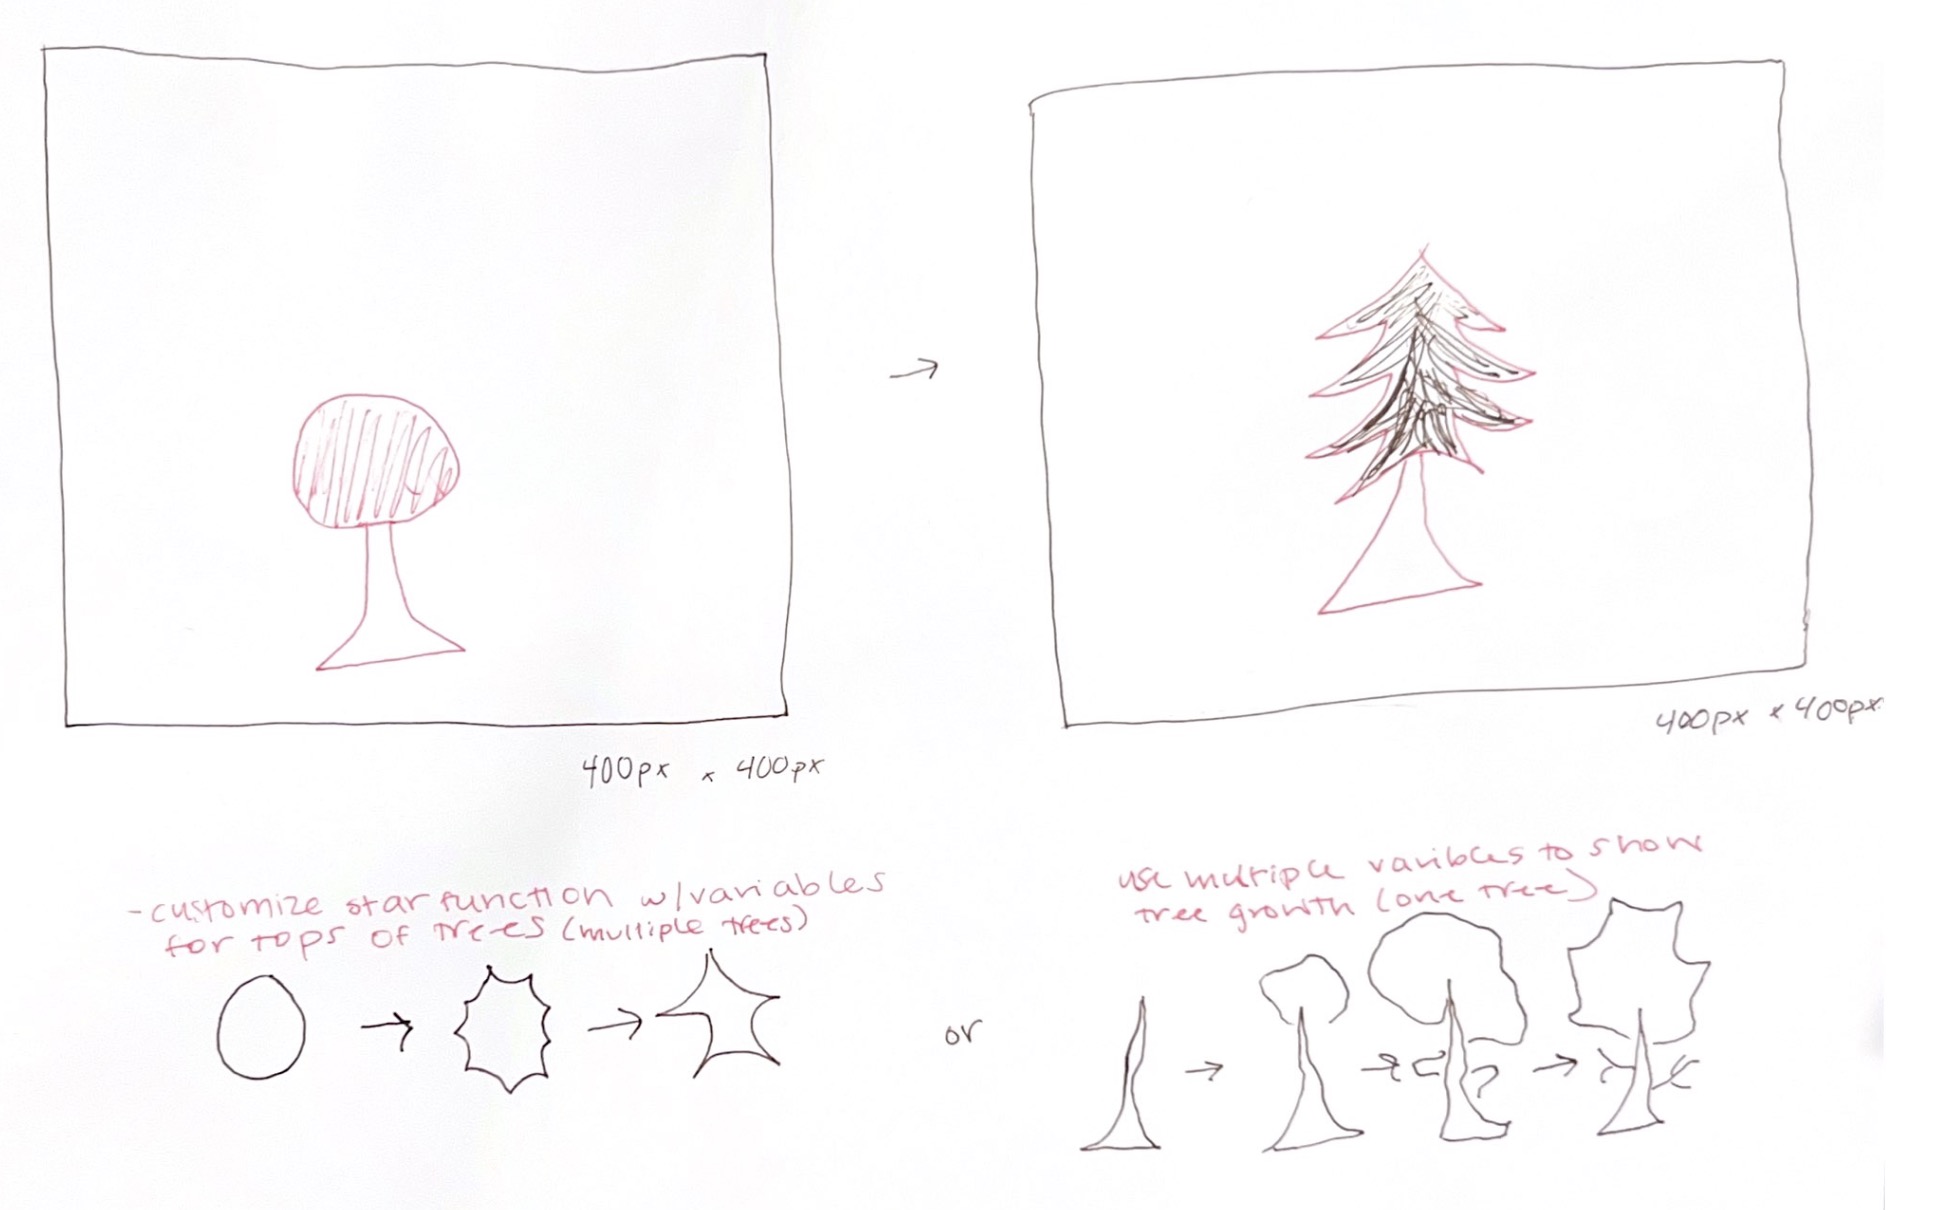 400px x 400px
400px x 400px
-customize star function w/variables
for tops of trees (multiple trees)
use multiple varibles to show
tree growth (one tree)
or